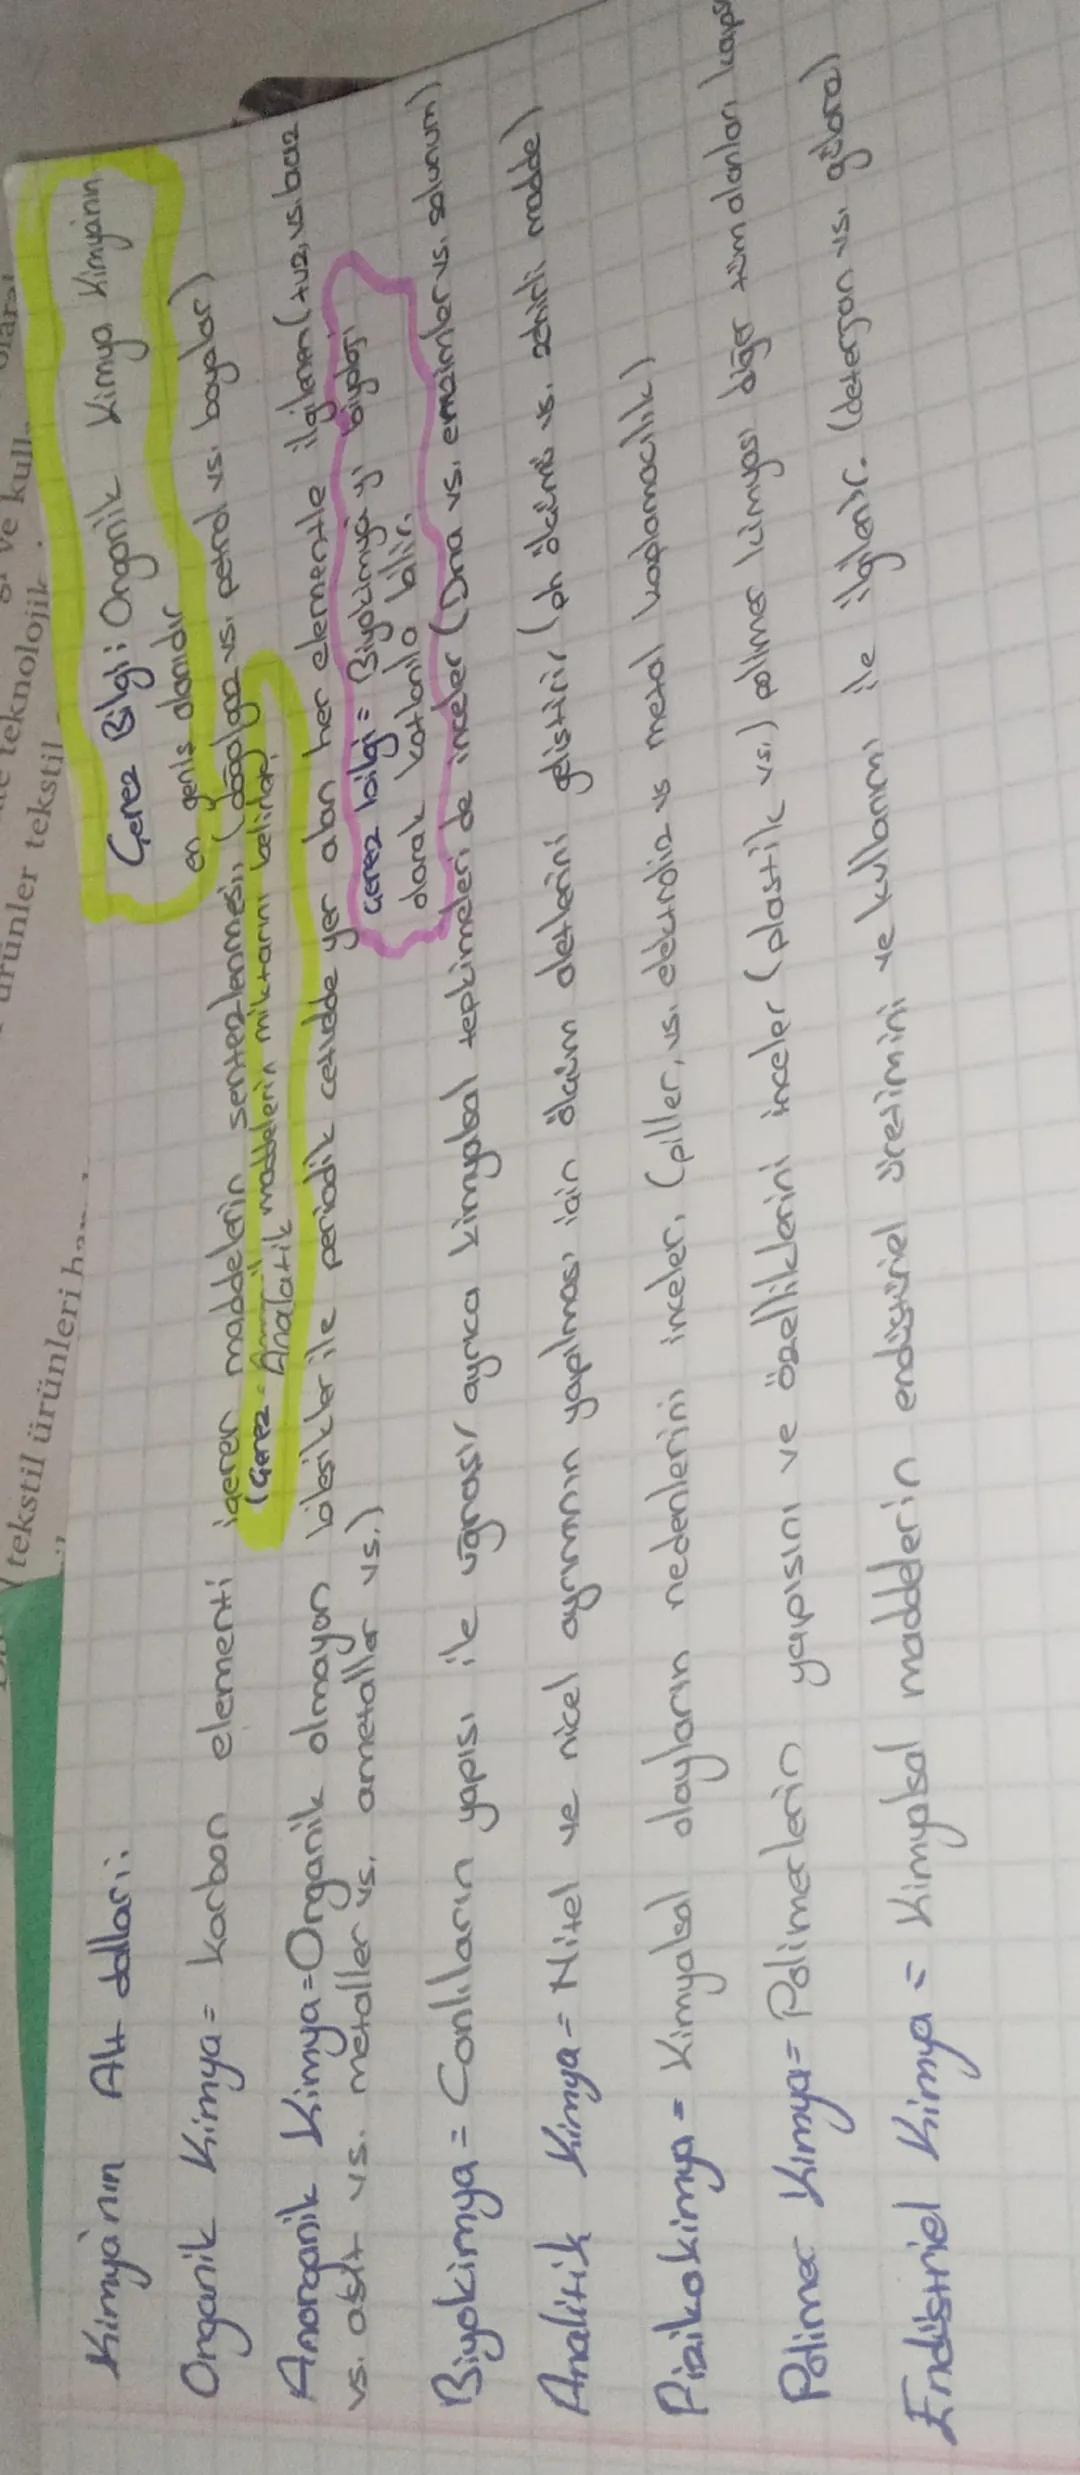 tekstil ürünleri
ürünler tekstil
teknolojik
ve kull
Kimya'nın Alt dalları:
Gerez Bilgi: Organik Kimya Kimyanın
en geniş alanıdır
Organik Kimya= karbon elementi içeren maddelerin sentezlenmesi, (doğalgaz vs. petrol vs. boyalar)
(Gerez= Analatik maddelerin miktarını belirler)
Anorganik Kimya=Organik olmayan bileşikler ile periodik cetvelde yer alan her elementle ilgilenen (tuz, vs. baz
vs. asit vs. metaller vs. ametaller vs.)
Gerez bilgi= Biyokimya yı biyoloji
olarak katlanıla bilir.
Biyokimya= Canlıların yapısı ile uğraşır ayrıca kimyalsal tepkimeleri de inceler (Dna vs. enzimler vs. solunum)
Analitik Kimya= Nitel ve nicel ayrımının yapılması için ölçüm aletlerini geliştirir (ph ölçümü vs. zehirli madde)
Fizikokimya= Kimyalsal olayların nedenlerini inceler, (piller, vs. elektroliz vs metal kaplamacılık)
Polimer Kimya= Polimerlerin yapısını ve özelliklerini inceler (plastik vs.) polimer kimyası diğer tüm alanları
Endüstriel Kimya = Kimyalsal maddelerin endüstriel üretimini ve kullanımı ile ilgilenir. (deterjan vs.